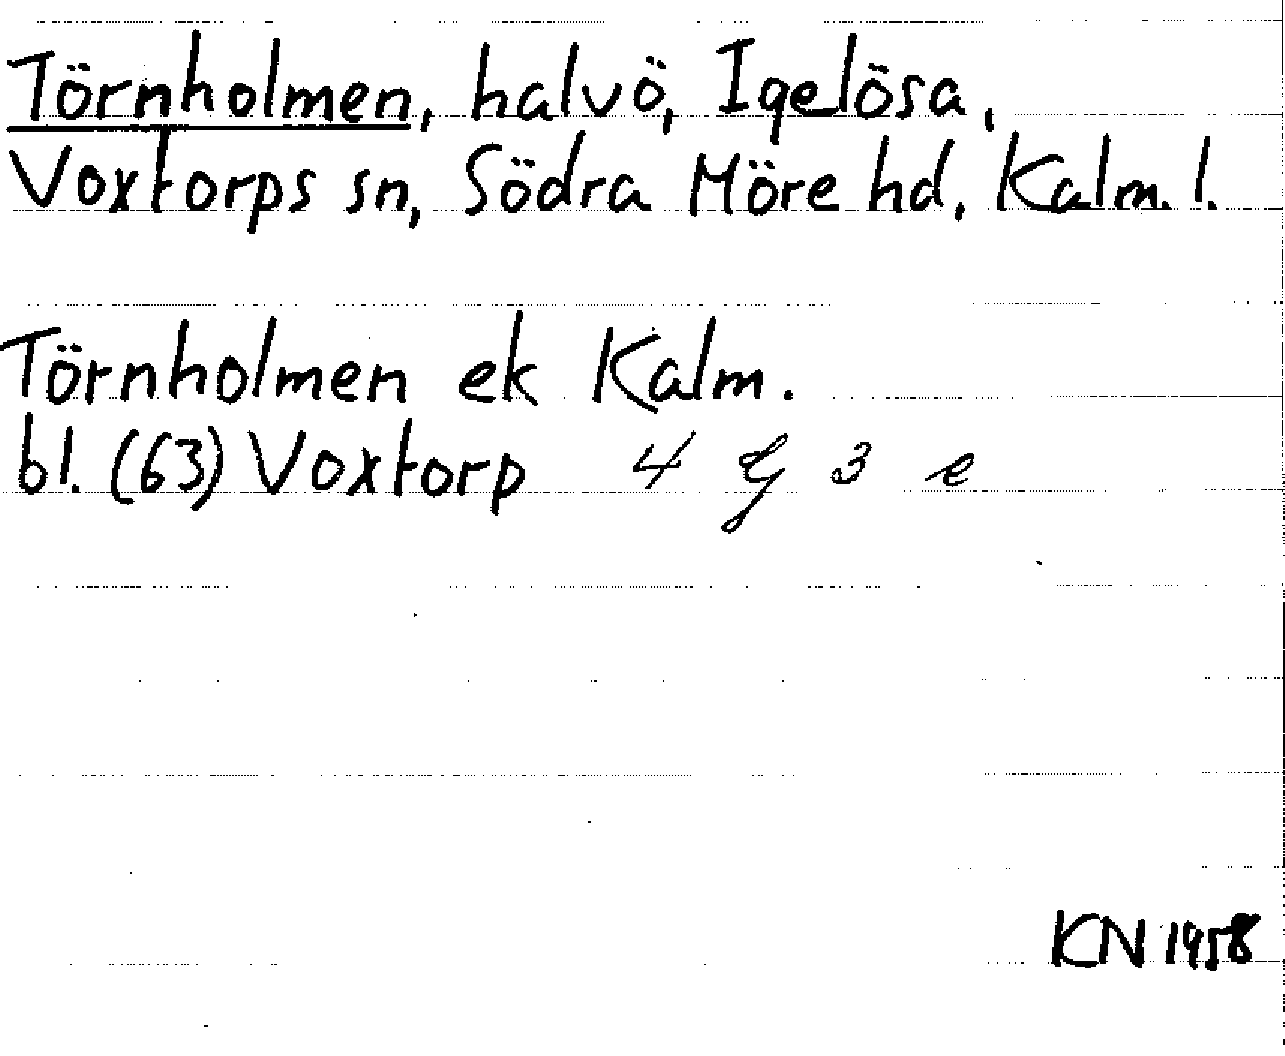 Törnholmen, halvö, Igelösa,
Voxtorps sn, Södra Möre hd, Kalm. l.
Törnholmen ek Kalm.
bl. (63) Voxtorp 4 G 3 e
KN 1958